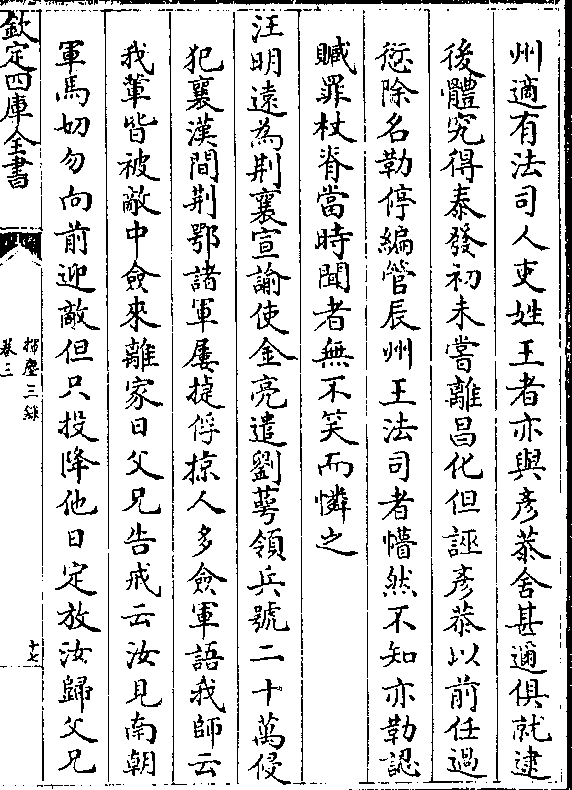 州適有法司人吏姓王者亦與彥恭舍甚邇俱就逮
後體究得泰發初未嘗離昌化但誣彥恭以前任過
愆除名勒停編管辰州王法司者懵然不知亦勒認
贓罪杖脊當時聞者無不笑而憐之
汪明遠為荆襄宣諭使金亮遣劉萼領兵號二十萬侵
犯襄漢間荆鄂諸軍屢捷俘掠人多僉軍語我師云
我軰皆被敵中僉來離家日父兄告戒云汝見南朝
軍馬切勿向前迎敵但只投降他日定放汝歸父兄
欽定四庫全書
揮麈三録
卷三
十七